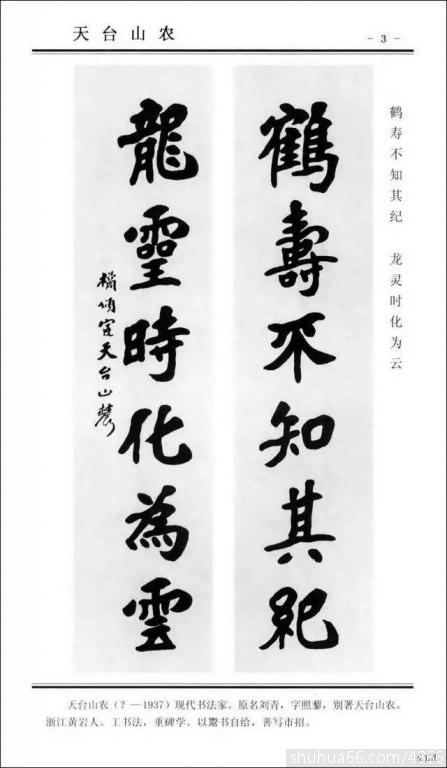 天台山农
－3－
鹤寿不知其纪　龙灵时化为云
鶴壽不知其紀
龍靈時化為雲
天台山農
天台山农（？—1937）现代书法家。原名刘青，字照藜，别署天台山农。
浙江黄岩人。工书法，重碑学。以鬻书自给，善写市招。
shuhua66.com